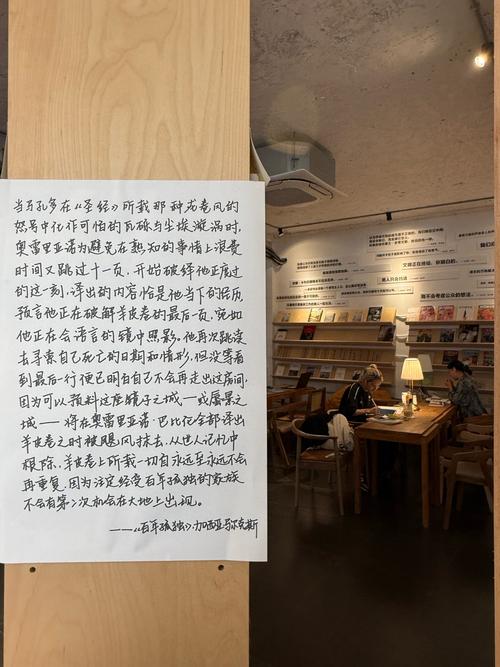 当马孔多在《圣经》所载那种龙卷风的
怒号中化作可怕的瓦砾与尘埃漩涡时，
奥雷里亚诺为避免在熟知的事情上浪费
时间又跳过十一页，开始破译他正度过
的这一刻，译出的内容恰是他当下的经历，
预言他正在破解羊皮卷的最后一页，宛如
他正在会语言的镜中照影。他再次跳读
去寻索自己死亡的日期和情形，但没等看
到最后一行便已明白自己不会再走出这房间，
因为可以预料这座镜子之城——或蜃景之
城——将在奥雷里亚诺·巴比伦全部译出
羊皮卷之时被飓风抹去，从世人记忆中
根除，羊皮卷上所载一切自永远至永远不会
再重复，因为注定经受百年孤独的家族
不会有第二次机会在大地上出现。
——《百年孤独》加西亚马尔克斯